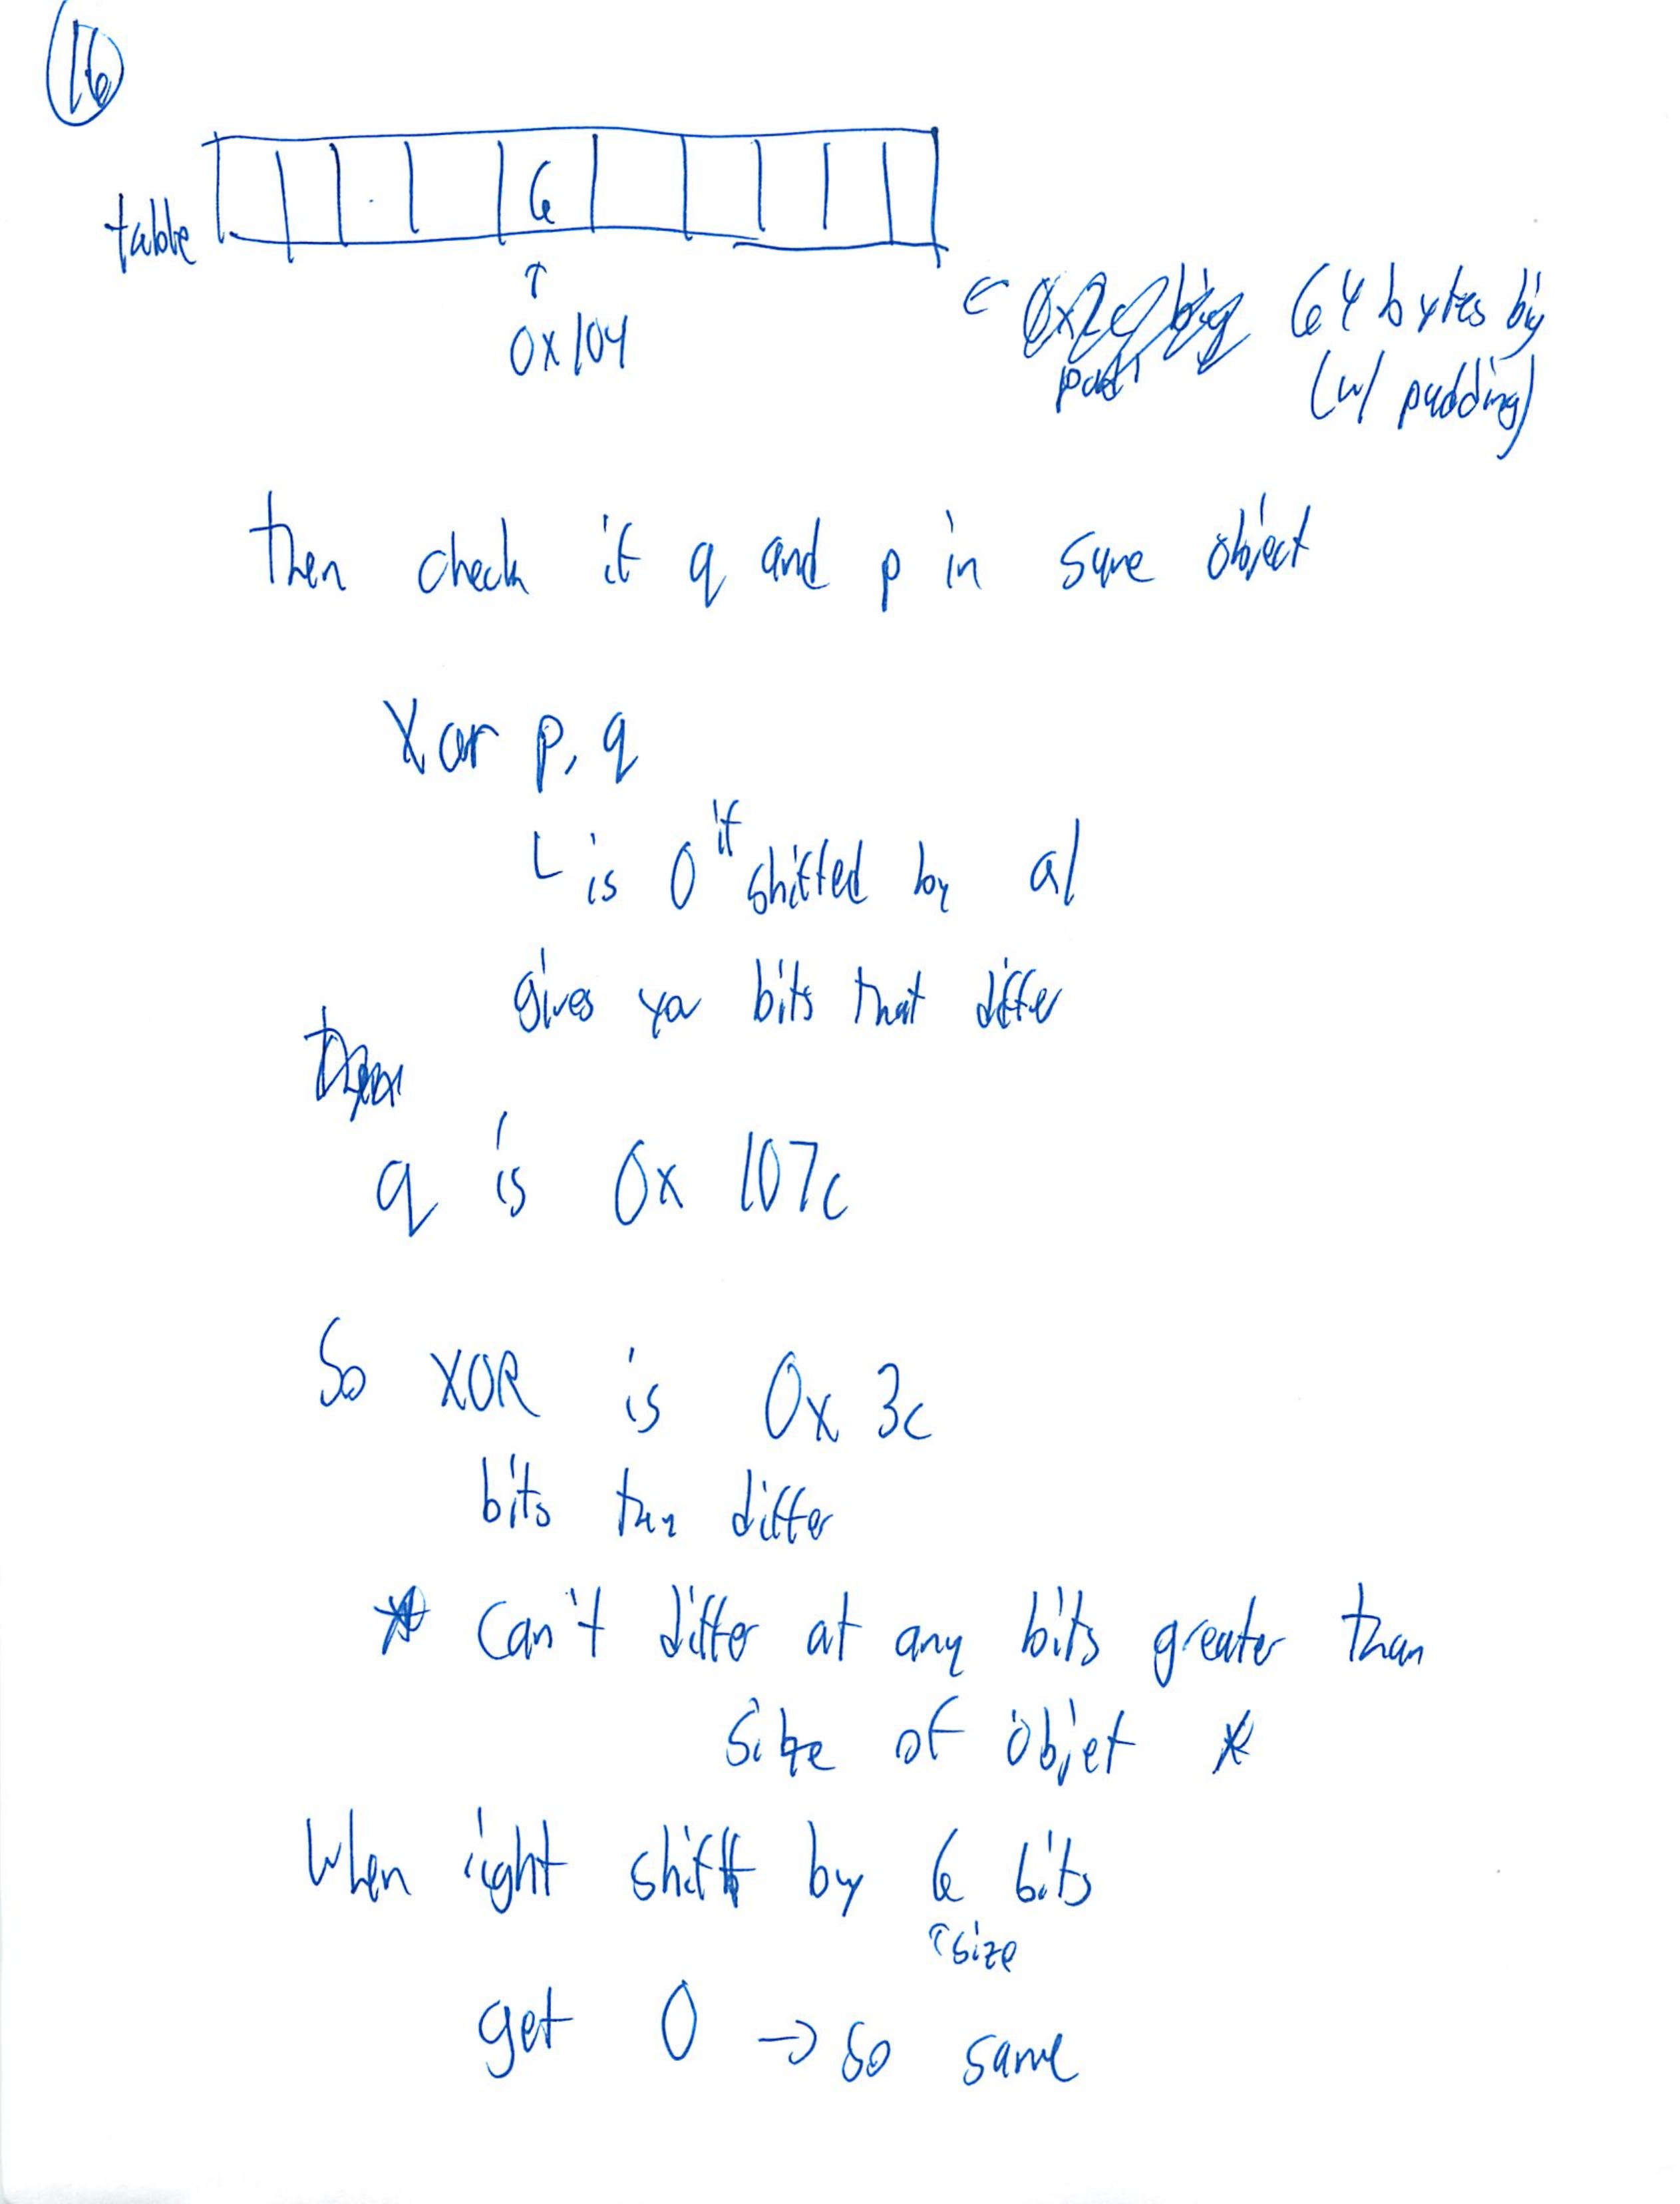 16
table
6
↑
0x104
← 64 bytes big
(w/ padding)
then check if q and p in same object
Xor p, q
L is 0 if shifted by al
gives you bits that differ
q is 0x 107c
So XOR is 0x 3c
bits that differ
* Can't differ at any bits greater than
Size of object *
When right shift by 6 bits
↑ size
get 0 → so same